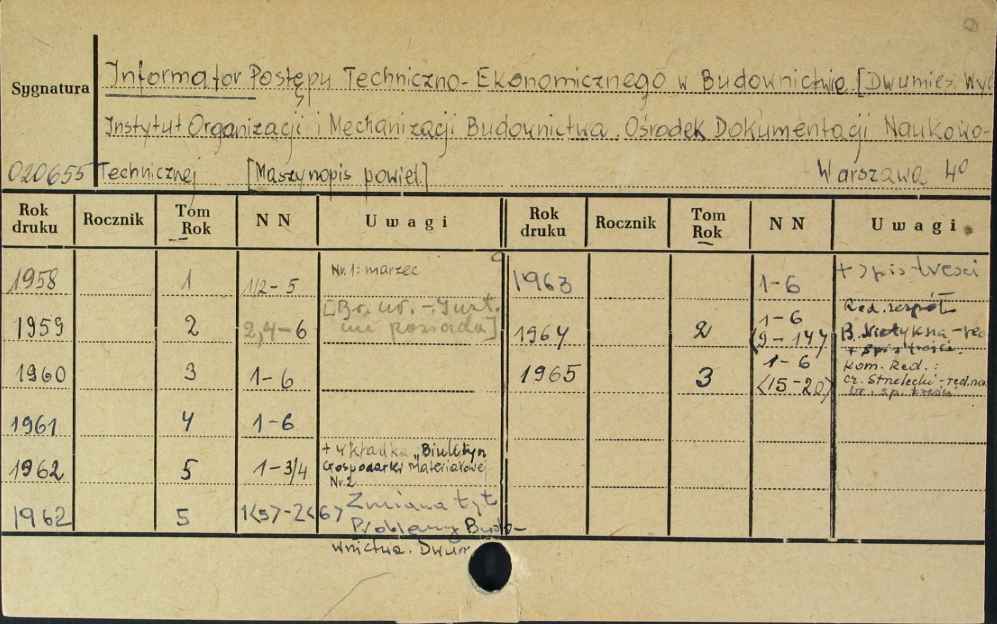 Sygnatura
Informator Postępu Techniczno-Ekonomicznego w Budownictwie [Dwumies. Wyd
Instytut Organizacji i Mechanizacji Budownictwa. Ośrodek Dokumentacji Naukowo-
020655 Technicznej [Maszynopis powiel.] Warszawa 4º
Rok druku Rocznik Tom Rok NN Uwagi Rok druku Rocznik Tom Rok NN Uwagi
1958 1 1/2-5 Nr. 1: marzec 1963 1-6 + spis treści
1959 2 2,4-6 [Br. nr. - Inst. nie posiada] 1964 2 1-6 (9-14) Red. zespół B. - red
+ spis treści.
1960 3 1-6 1965 3 1-6 (15-20) Kom. Red.:
cz. Strzelecki - red. na
br. sp. treści
1961 4 1-6
1962 5 1-3/4 + wkładka „Biuletyn
Gospodarki Materiałowej
Nr. 2
1962 5 1(5)-2(6) Zmiana tyt.
Problemy Budo-
wnictwa. Dwum